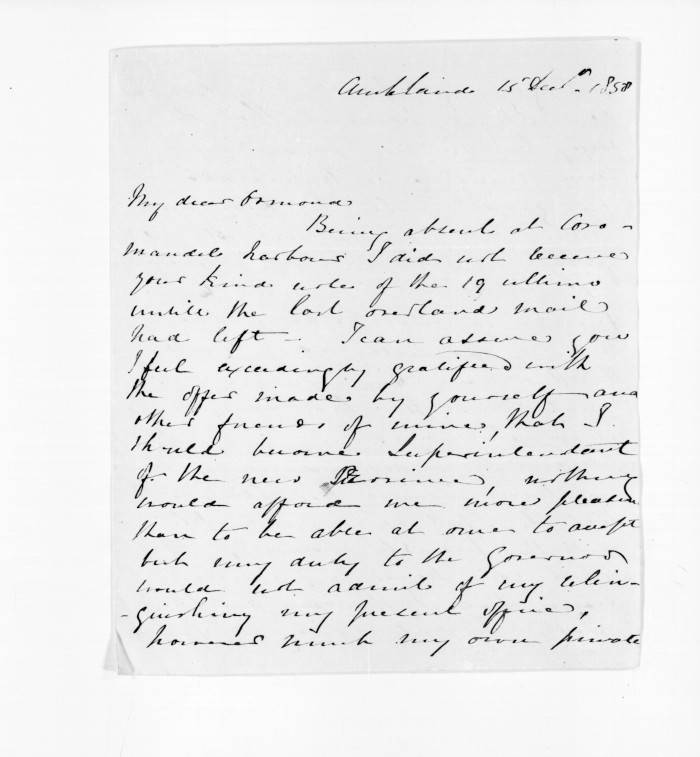 Auckland 15 Decr. 1858
My dear Ormond
Being absent at Coro-
mandel harbour I did not receive
your kind note of the 19 ultimo
untill the last overland mail
had left - I can assure you
I feel exceedingly gratified with
the offer made by yourself and
other friends of mine, that I
should become Superintendant
of the new Province, nothing
would afford me more pleasure
than to be able at once to accept
but my duty to the Governor
would not admit of my relin-
-quishing my present office,
however much my own private